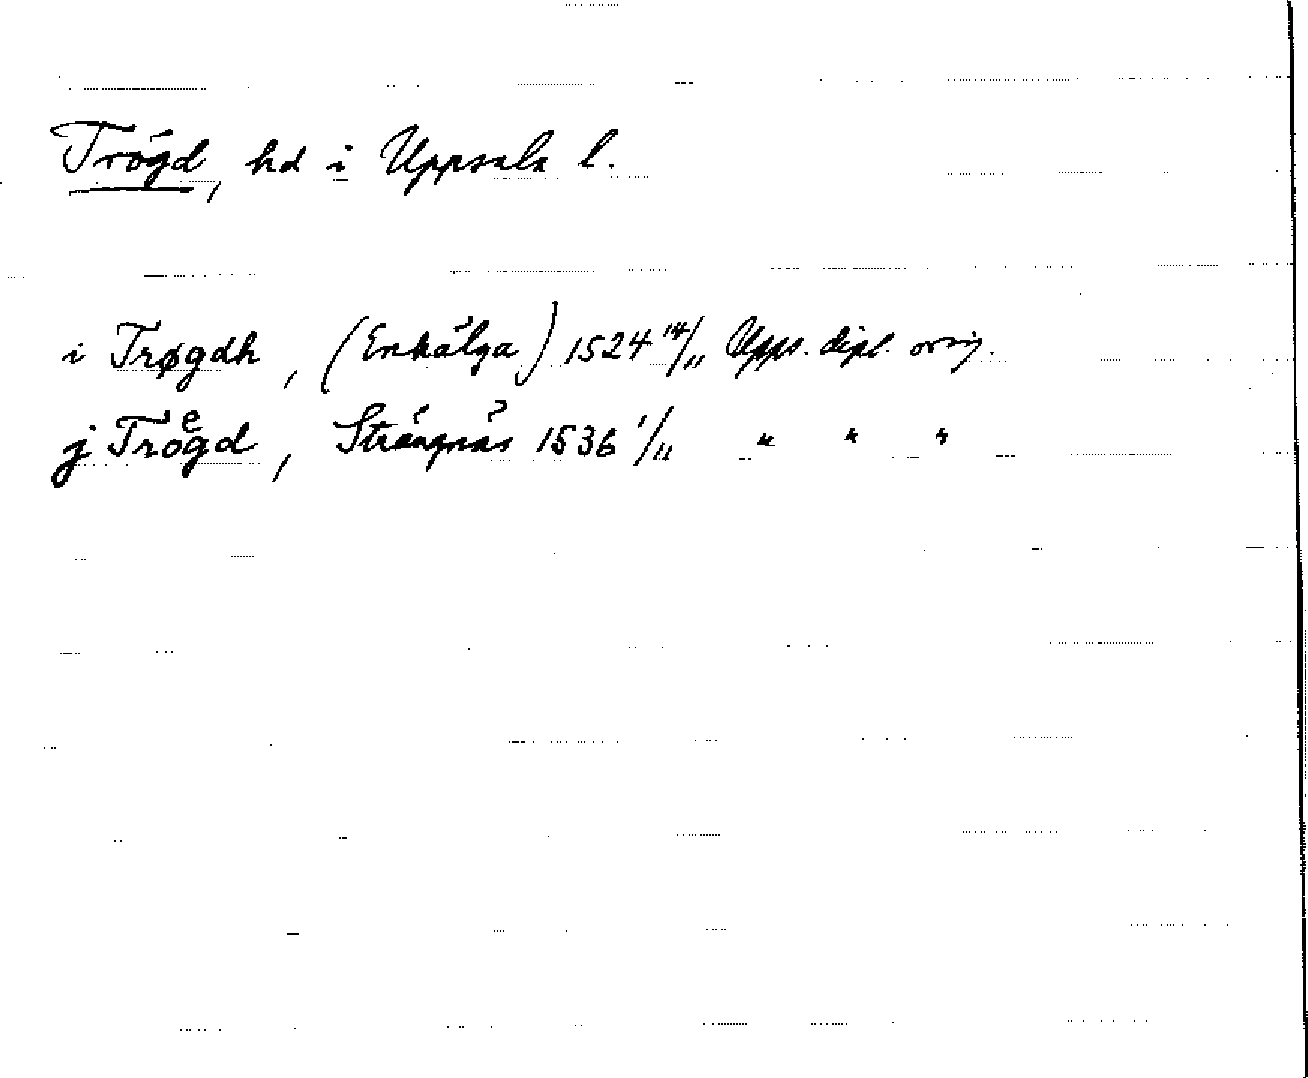 Trögd, hd i Uppsala l.
i Trøgdh, (Enkälga) 1524 14/11 Upps. dipl. orig.
j Troͤgd, Strängnäs 1536 1/11 " " "